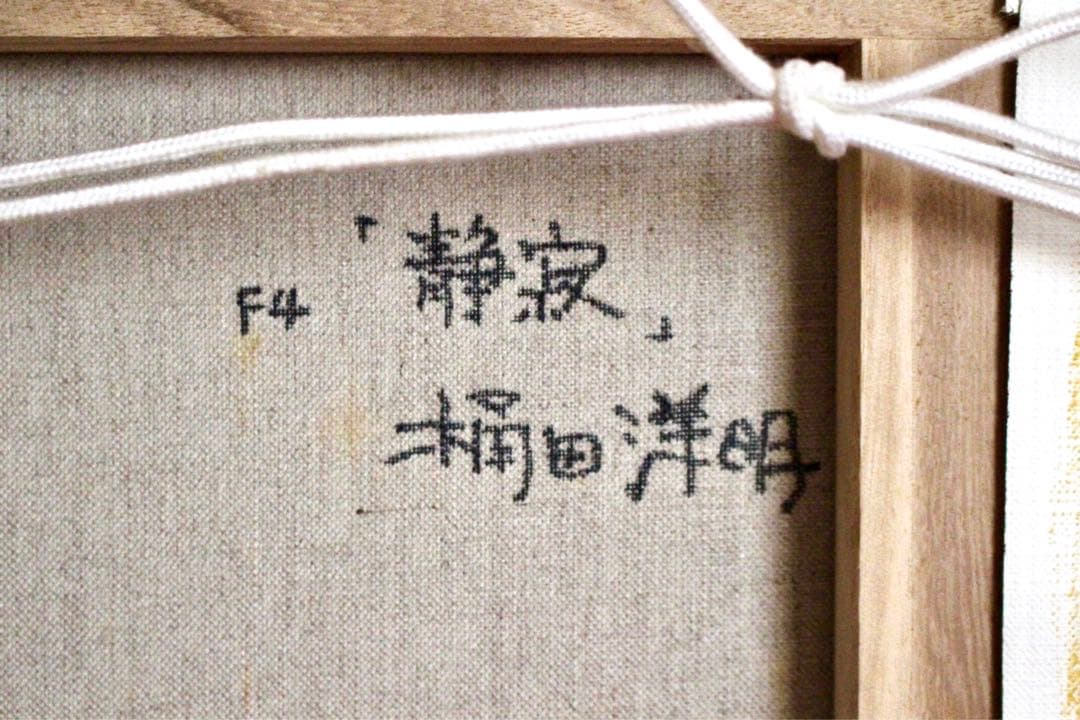 F4 「静寂」
桶田洋明